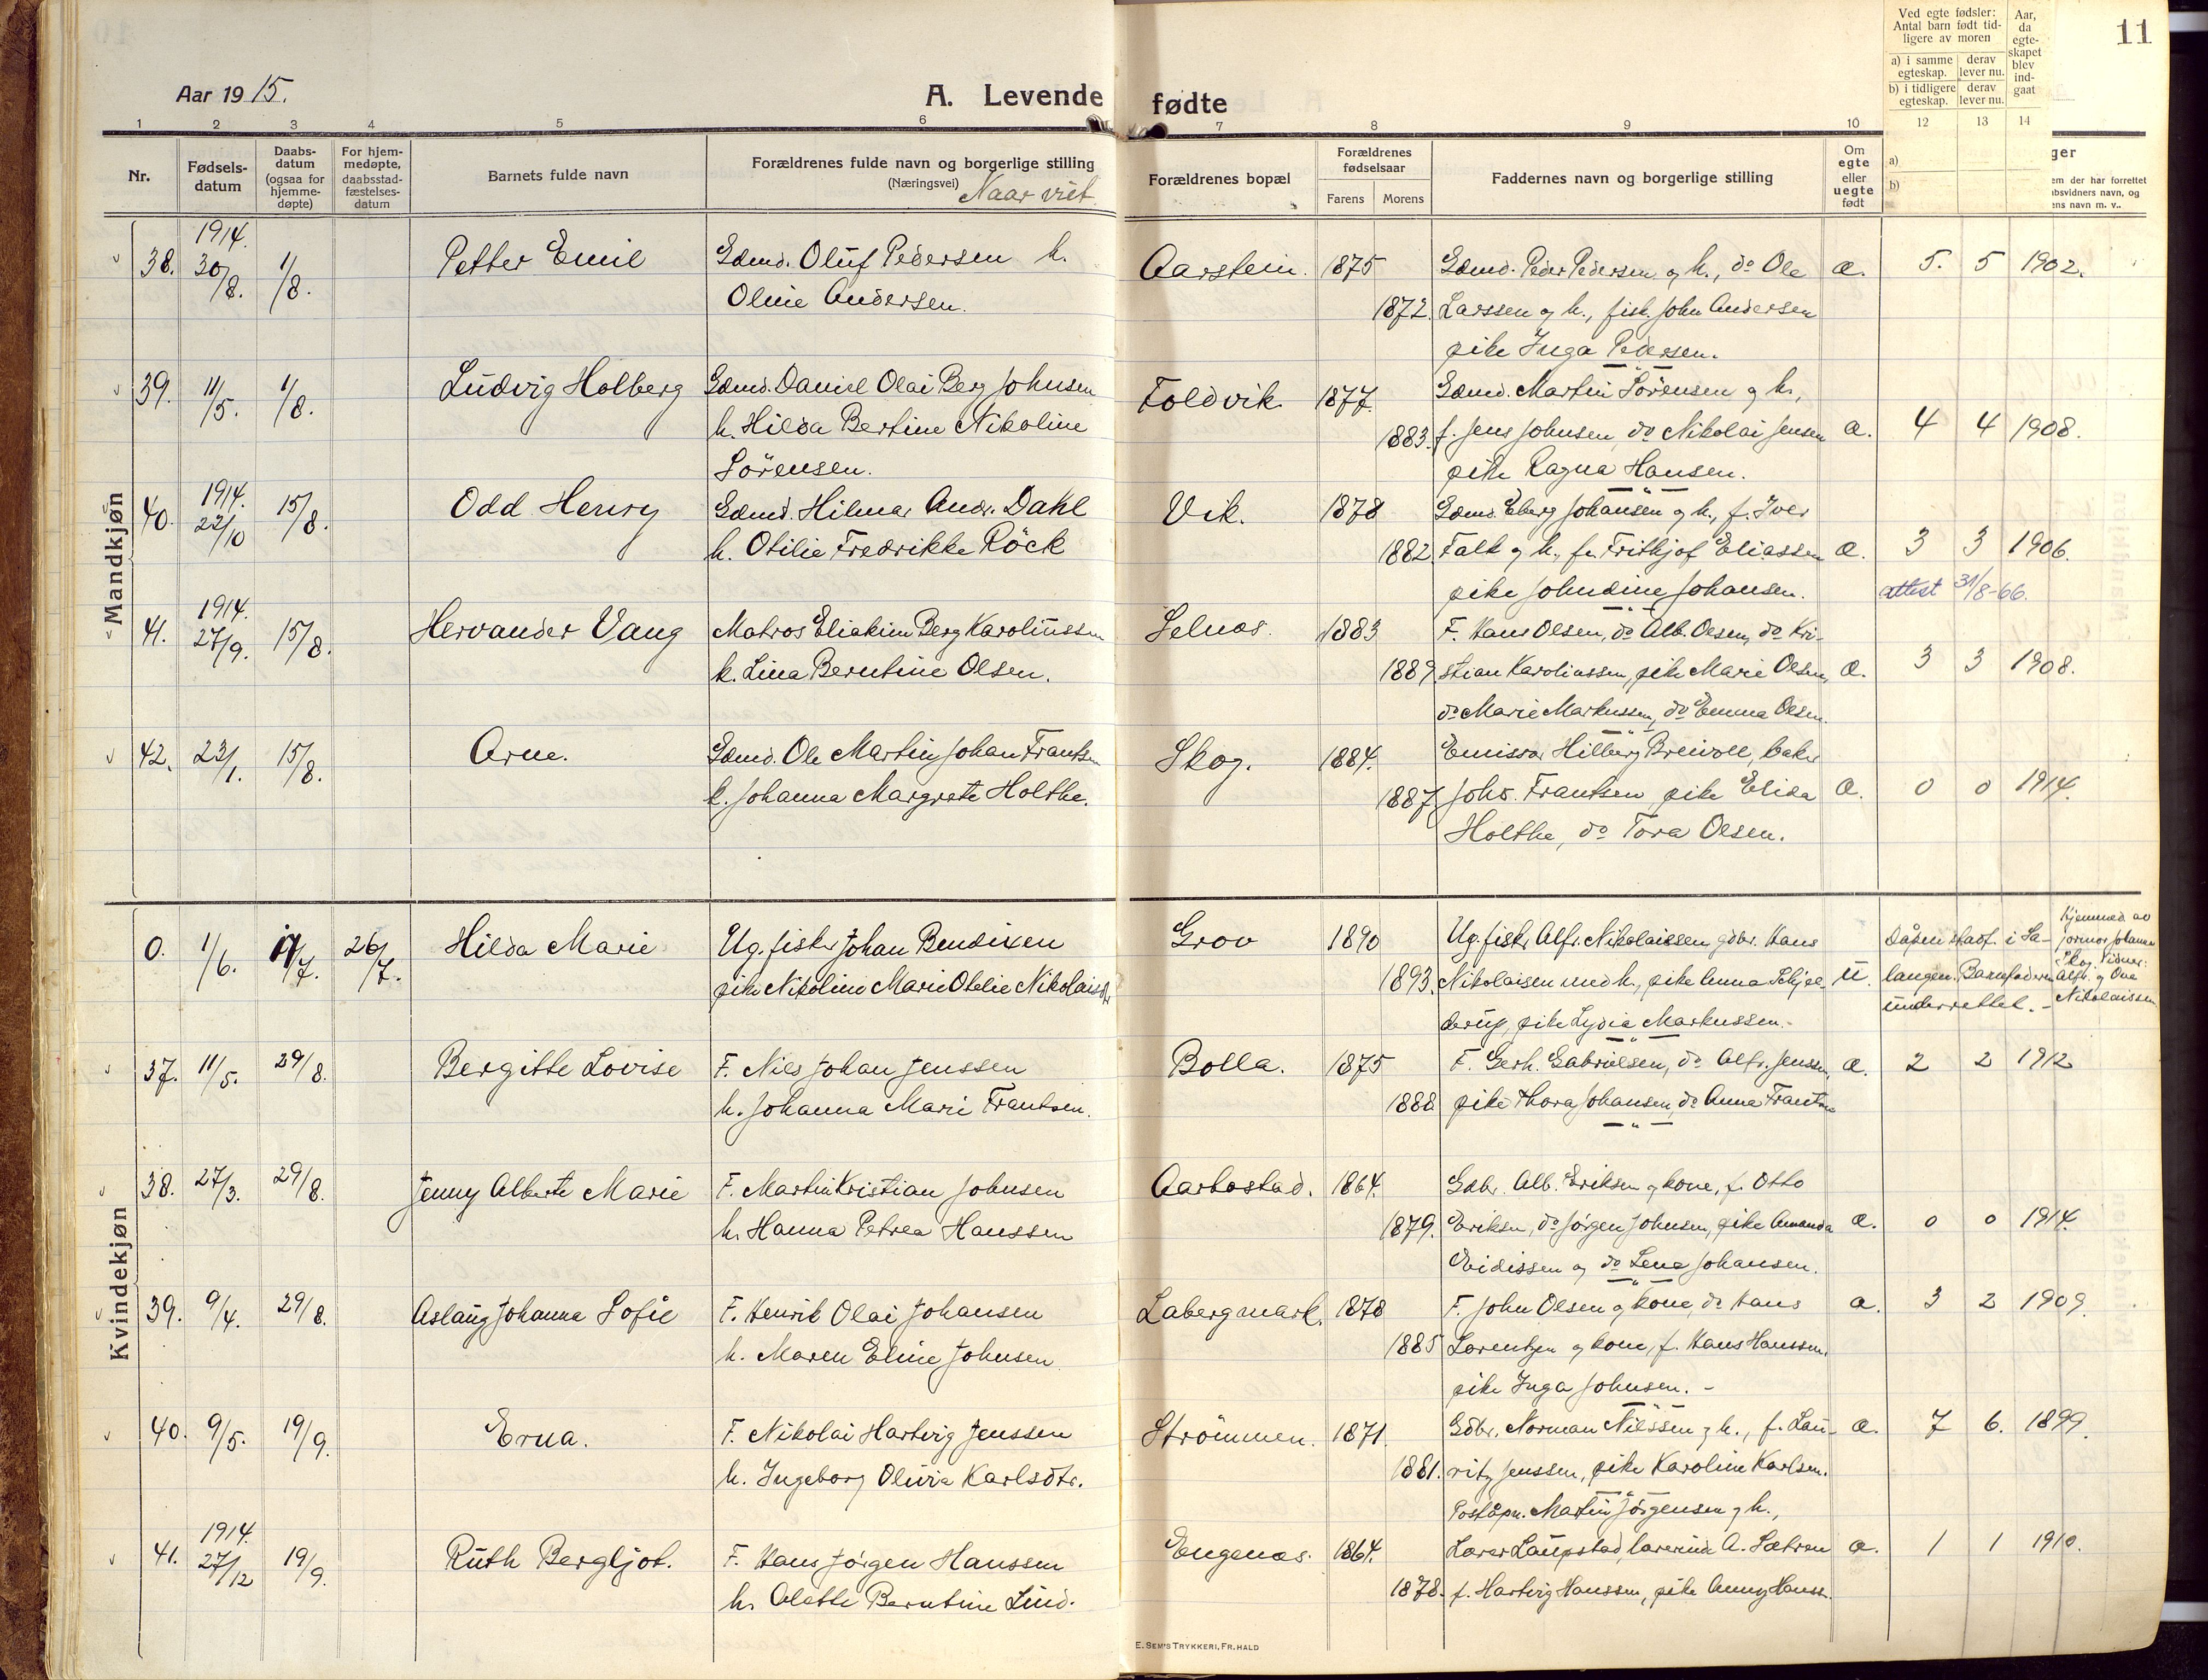 Aar 1915.
A. Levende fødte
11
Ved egte fødsler:
Antal barn født tid-
ligere av moren
Aar,
da
egte-
skapet
blev
ind-
gaat
a) i samme egteskap.
derav lever nu.
b) i tidligere egteskap.
derav lever nu.
1 2 3 4 5 6 7 8 9 10 12 13 14
Nr.
Fødsels-
datum
Daabs-
datum
(ogsaa for
hjemme-
døpte)
For hjem-
medøpte,
daabsstad-
fæstelses-
datum
Barnets fulde navn
Forældrenes fulde navn og borgerlige stilling
(Næringsvei) Naar viet
Forældrenes bopæl
Forældrenes
fødselsaar
Farens Morens
Faddernes navn og borgerlige stilling
Om
egte
eller
uegte
født
a)
b)
ger
em der har forrettet
bsvidners navn, og
ens navn m. v..
Mandkjøn
1914.
38. 30/8. 1/8. Petter Emil Gdmd. Oluf Pedersen h. Aarstein. 1875 Gdmd. Peder Pedersen og h., do Ole æ. 5. 5 1902.
Oline Andersen. 1872. Larssen og h., fisk. John Andersen
pike Inga Pedersen.
39. 11/5. 1/8. Ludvig Holberg Gdmd. Daniel Olai Berg Johnsen Foldvik 1877. Gdmd. Martin Sørensen og h.,
h. Hilda Bertine Nikoline 1883. f. Jens Johnsen, do Nikolai Jensen æ. 4 4 1908.
Sörensen. pike Ragna Hansen.
1914.
40. 22/10 15/8. Odd Henry Gdmd. Hilmar Andr. Dahl Vik. 1878 Gdmd. Eberg Johansen og h., f. Iver
h. Otilie Fredrikke Röck 1882. Falk og h., f. Frithjof Eliassen æ. 3 3 1906.
pike Johndine Johansen. attest 31/8-66.
1914.
41. 27/9. 15/8. Hervander Vang Matros Eliakim Berg Karolinussen Selnæs. 1883 F. Hans Olsen, do Alb. Olsen, do Kri-
k. Lina Berntine Olsen. 1889 stian Karolinssen, pike Marie Olsen, æ. 3 3 1908.
do Marie Markussen, do Emma Olsen.
42. 23/1. 15/8. Arne. Gdmd. Ole Martin Johan Frantsen Skog. 1884. Emissær Hilberg Breivoll, baker
k. Johanna Margrete Holthe. 1887. Johs. Frantsen, pike Elida æ. 0 0 1914.
Holthe, do Tora Olsen.
Kvindekjøn
0. 1/6. 11/7. 26/7. Hilda Marie Ug. fisker Johan Bendixen Grov 1890 Ug. fisk. Alfr. Nikolaissen, gdbr. Hans Daåben stadf. i Sa- Hjemmed. av
pike Nikoline Marie Otelie Nikolaisdtr 1893. Nikolaisen med h., pike Anna Schjel- u. langen. Barnefaderen
derup, pike Lydia Markussen. underrettet. - Nikolaissen
37. 11/5. 29/8. Bergitte Lovise F. Nils Johan Jenssen Bolla. 1875 F. Gerh. Gabrielsen, do Alfr. Jenssen, æ. 2 2 1912
h. Johanna Marie Frantsen. 1888 pike Thora Johansen, do Anna Frantsen
38. 27/3. 29/8. Jenny Alberte Marie F. Martin Kristian Johnsen Aarbostad. 1864. Gdbr. Alb. Eriksen og kone, f. Otto
h. Hanna Petrea Hanssen 1879. Eriksen, do Jørgen Johnsen, pike Amanda æ. 0 0 1914.
Eidissen og do Lena Johansen.
39. 9/4. 29/8. Aslaug Johanna Sofie F. Henrik Olai Johansen Labergmark. 1878 F. John Olsen og kone, do Hans æ. 3 2 1909.
h. Maren Eline Johnsen 1885 Lorentzen og kone, f. Hans Hanssen,
pike Inga Johnsen. -
40. 9/5. 19/9. Erna. F. Nikolai Hartvig Jenssen Strömmen. 1871. Gdbr. Norman Nilssen og h., f. Lau- æ. 7 6. 1899.
h. Ingeborg Olivia Karlsdtr. 1881. ritz Jenssen, pike Karoline Karlsen.
Poståpn. Martin Jörgensen og h.,
1914.
41. 27/12 19/9. Ruth Bergljot. F. Hans Jørgen Hanssen Engenæs. 1864. Lærer Laupstad, lærerinde A. Sætren æ. 1 1 1910.
h. Olette Berntine Lind. 1878. f. Hartvig Hanssen, pike Anny Hanss.
E. SEM'S TRYKKERI, FR.HALD